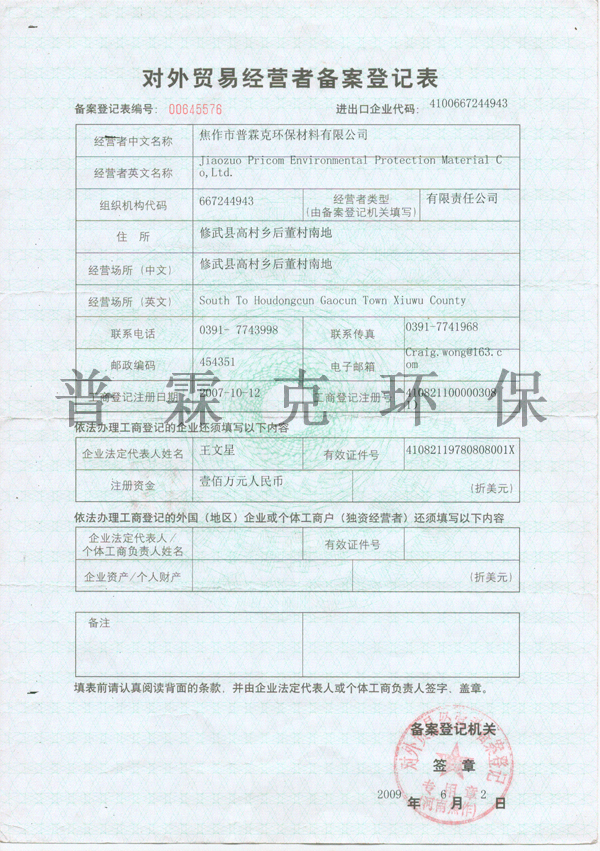 对外贸易经营者备案登记表
备案登记表编号: 00645576 进出口企业代码: 4100667244943
经营者中文名称 焦作市普霖克环保材料有限公司
经营者英文名称 Jiaozuo Pricom Environmental Protection Material C
o,Ltd.
组织机构代码 667244943 经营者类型
(由备案登记机关填写) 有限责任公司
住 所 修武县高村乡后董村南地
经营场所（中文） 修武县高村乡后董村南地
经营场所（英文） South To Houdongcun Gaocun Town Xiuwu County
联系电话 0391- 7743998 联系传真 0391-7741968
邮政编码 454351 电子邮箱 Craig.wong@163.c
om
工商登记注册日期 2007-10-12 工商登记注册号 410821100000308
1)
普霖克环保
依法办理工商登记的企业还须填写以下内容
企业法定代表人姓名 王文星 有效证件号 41082119780808001X
注册资金 壹佰万元人民币 (折美元)
依法办理工商登记的外国（地区）企业或个体工商户（独资经营者）还须填写以下内容
企业法定代表人/
个体工商负责人姓名 有效证件号
企业资产/个人财产 (折美元)
备注
填表前请认真阅读背面的条款，并由企业法定代表人或个体工商负责人签字、盖章。
备案登记机关
签 章
2009 年 6 月 2 日
对外贸易经营者备案登记
专用章
(河南焦作)